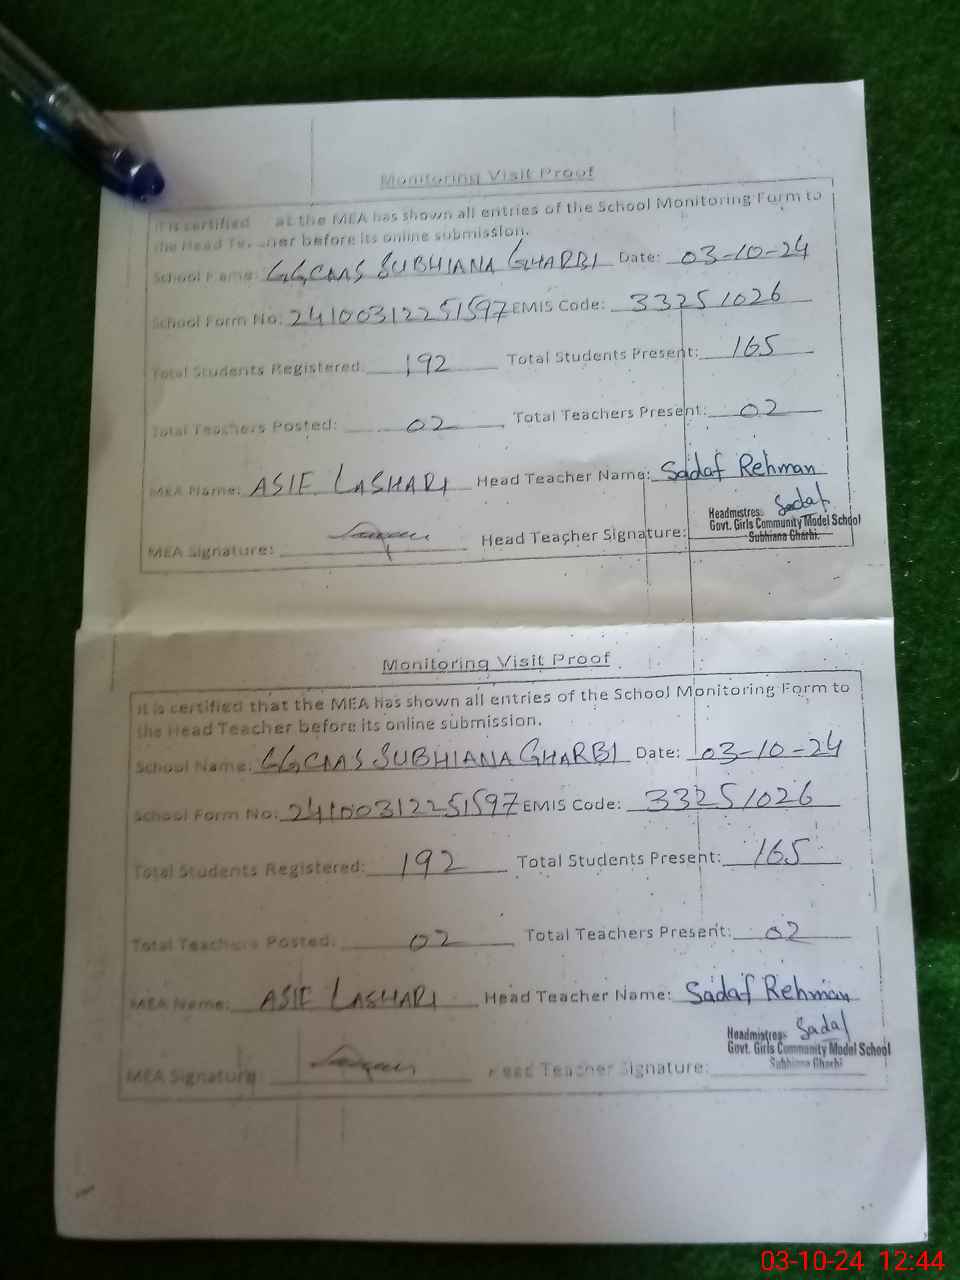 Monitoring Visit Proof
It is certified at the MEA has shown all entries of the School Monitoring Form to
the Head Teacher before its online submission.
School Name: GGCMS SUBHIANA GHARBI Date: 03-10-24
School Form No: 241003122251597 EMIS Code: 33251026
Total Students Registered: 192 Total Students Present: 165
Total Teachers Posted: 02 Total Teachers Present: 02
MEA Name: ASIF LASHARI Head Teacher Name: Sadaf Rehman
MEA Signature: Head Teacher Signature: Sadaf
Headmistres:
Govt. Girls Community Model School
Subhiana Gharbi.
Monitoring Visit Proof
It is certified that the MEA has shown all entries of the School Monitoring Form to
the Head Teacher before its online submission.
School Name: GGCMS SUBHIANA GHARBI Date: 03-10-24
School Form No: 241003122251597 EMIS Code: 33251026
Total Students Registered: 192 Total Students Present: 165
Total Teachers Posted: 02 Total Teachers Present: 02
MEA Name: ASIF LASHARI Head Teacher Name: Sadaf Rehman
MEA Signature: Head Teacher Signature: Sadaf
Headmistres:
Govt. Girls Community Model School
Subhiana Gharbi
03-10-24 12:44